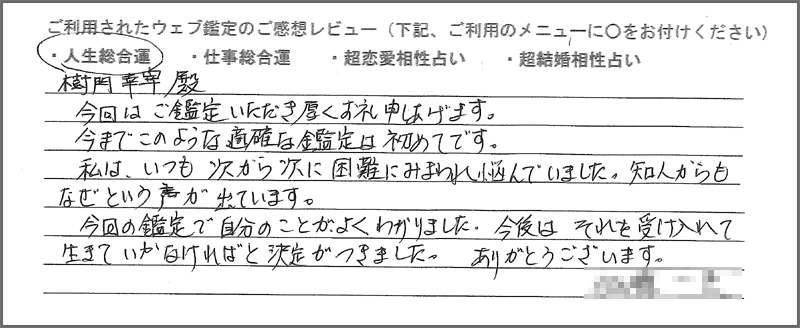 ご利用されたウェブ鑑定のご感想レビュー（下記、ご利用のメニューに〇をお付けください）
・人生総合運　・仕事総合運　・超恋愛相性占い　・超結婚相性占い
樹門幸宰殿
今回はご鑑定いただき厚くお礼申しあげます。
今までこのような適確な鑑定は初めてです。
私は、いつも次から次に困難にみまわれ悩んでいました。知人からも
なぜという声が出ています。
今回の鑑定で自分のことがよくわかりました。今後はそれを受け入れて
生きていかなければと決定がつきました。　ありがとうございます。